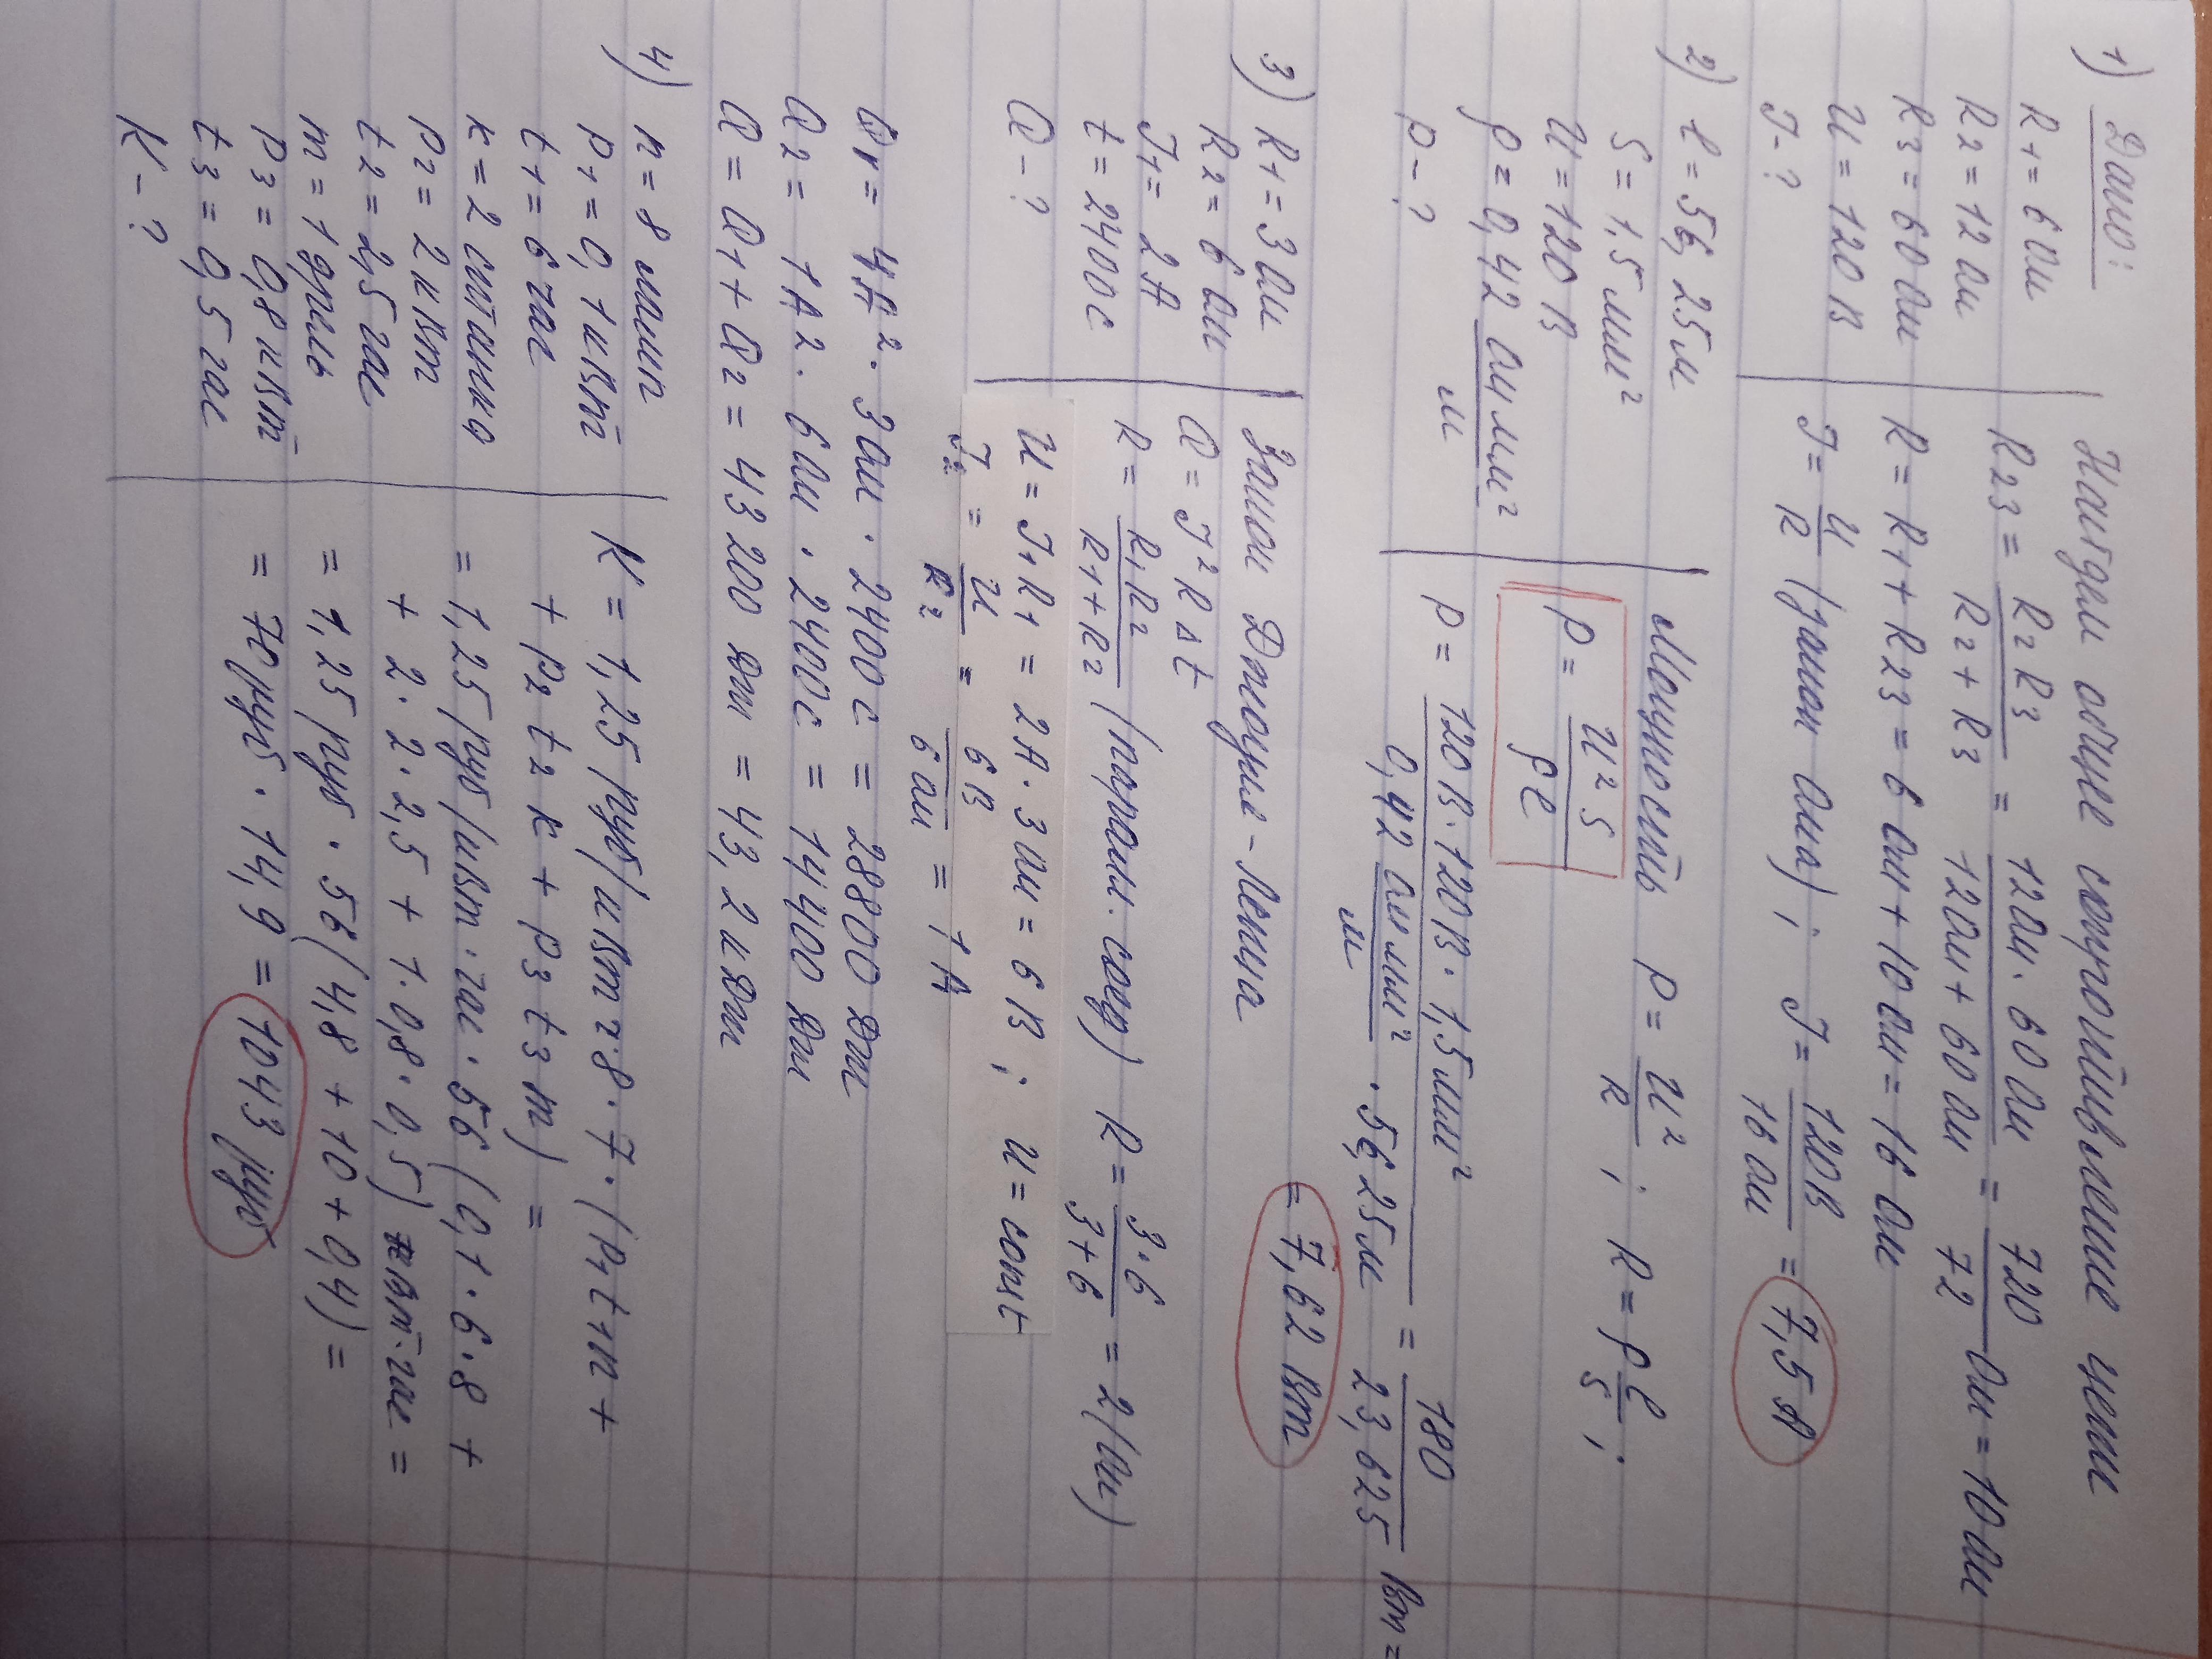 1) Дано:
R1 = 6 Ом
R2 = 12 Ом
R3 = 60 Ом
U = 120 В
J - ?
Найдем общее сопротивление цепи
R23 = R2 R3 / R2 + R3 = 12 Ом · 60 Ом / 12 Ом + 60 Ом = 720 / 72 Ом = 10 Ом
R = R1 + R23 = 6 Ом + 10 Ом = 16 Ом
J = U / R (закон Ома); J = 120 В / 16 Ом = 7,5 А
2) ℓ = 56,25 м
S = 1,5 мм²
U = 120 В
ρ = 0,42 Ом мм² / м
P - ?
Мощность P = U² / R ; R = ρ ℓ / S ;
P = U² S / ρ ℓ
P = 120 В · 120 В · 1,5 мм² / 0,42 Ом мм² / м · 56,25 м = 180 / 23,625 Вт =
= 7,62 Вт
3) R1 = 3 Ом
R2 = 6 Ом
J1 = 2 А
t = 2400 с
Q - ?
Закон Джоуля-Ленца
Q = J² R Δt
R = R1 R2 / R1 + R2 (паралл. соед) R = 3·6 / 3+6 = 2 (Ом)
U = J1 R1 = 2 А · 3 Ом = 6 В ; U = const
J2 = U / R2 = 6 В / 6 Ом = 1 А
Q1 = 4 А² · 3 Ом · 2400 с = 28800 Дж
Q2 = 1 А² · 6 Ом · 2400 с = 14400 Дж
Q = Q1 + Q2 = 43200 Дж = 43,2 кДж
4) n = 8 ламп
P1 = 0,1 кВт
t1 = 6 час
к = 2 станка
P2 = 2 кВт
t2 = 2,5 час
m = 1 дрель
P3 = 0,8 кВт
t3 = 0,5 час
K - ?
K = 1,25 руб/кВт ч · 8 · 7 · (P1 t1 n +
+ P2 t2 к + P3 t3 m) =
= 1,25 руб/кВт · час · 56 (0,1 · 6 · 8 +
+ 2 · 2 · 2,5 + 1 · 0,8 · 0,5) кВт · час =
= 1,25 руб · 56 (4,8 + 10 + 0,4) =
= 70 руб · 14,9 = 1043 руб